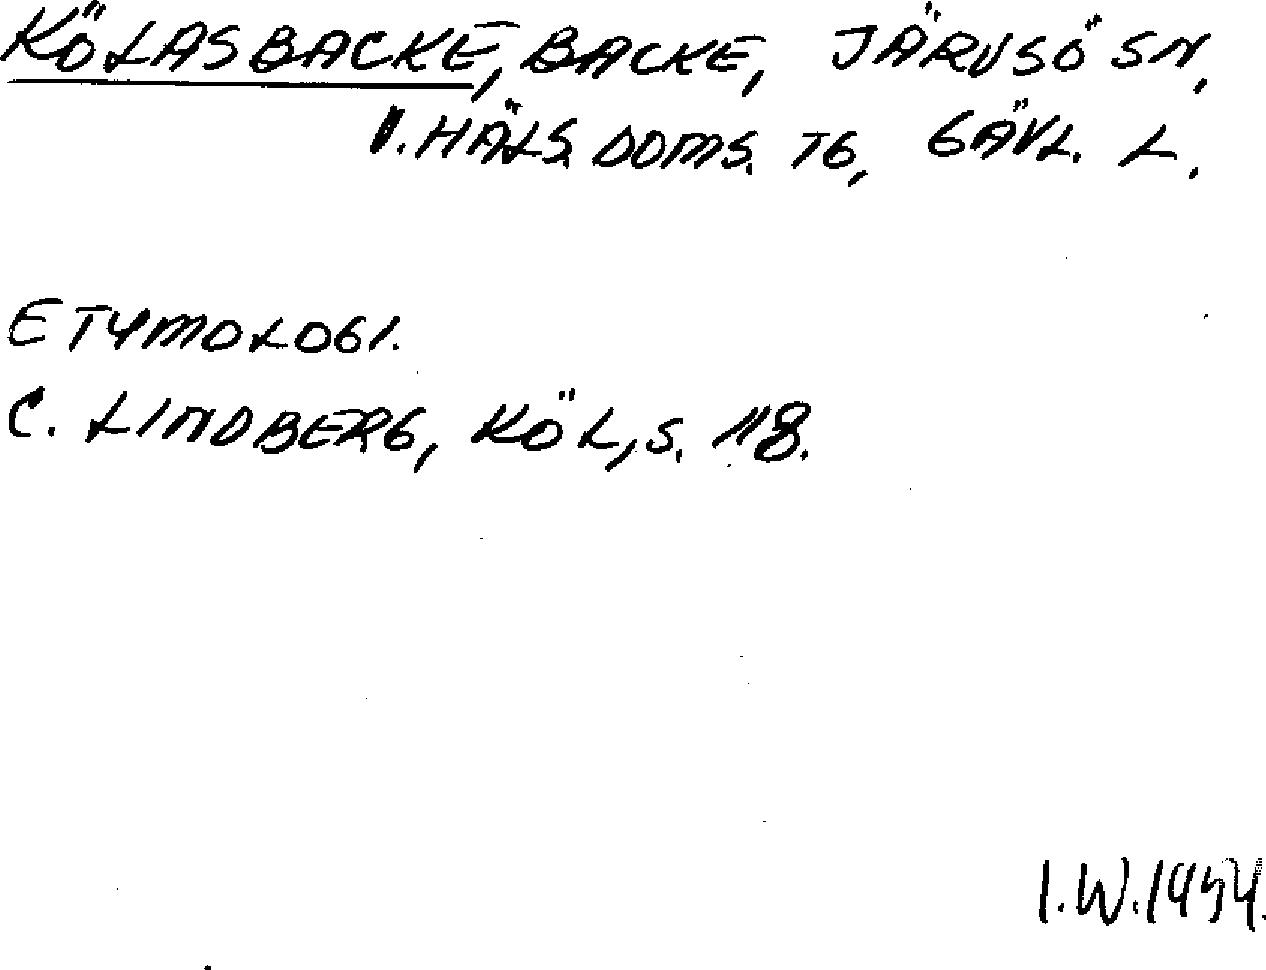 KÖLASBACKE, BACKE, JÄRVSÖ SN,
V. HÄLS. DOMS. TG, GÄVL. L.
ETYMOLOGI.
C. LINDBERG, KÖL, S. 118.
I.W. 1954.